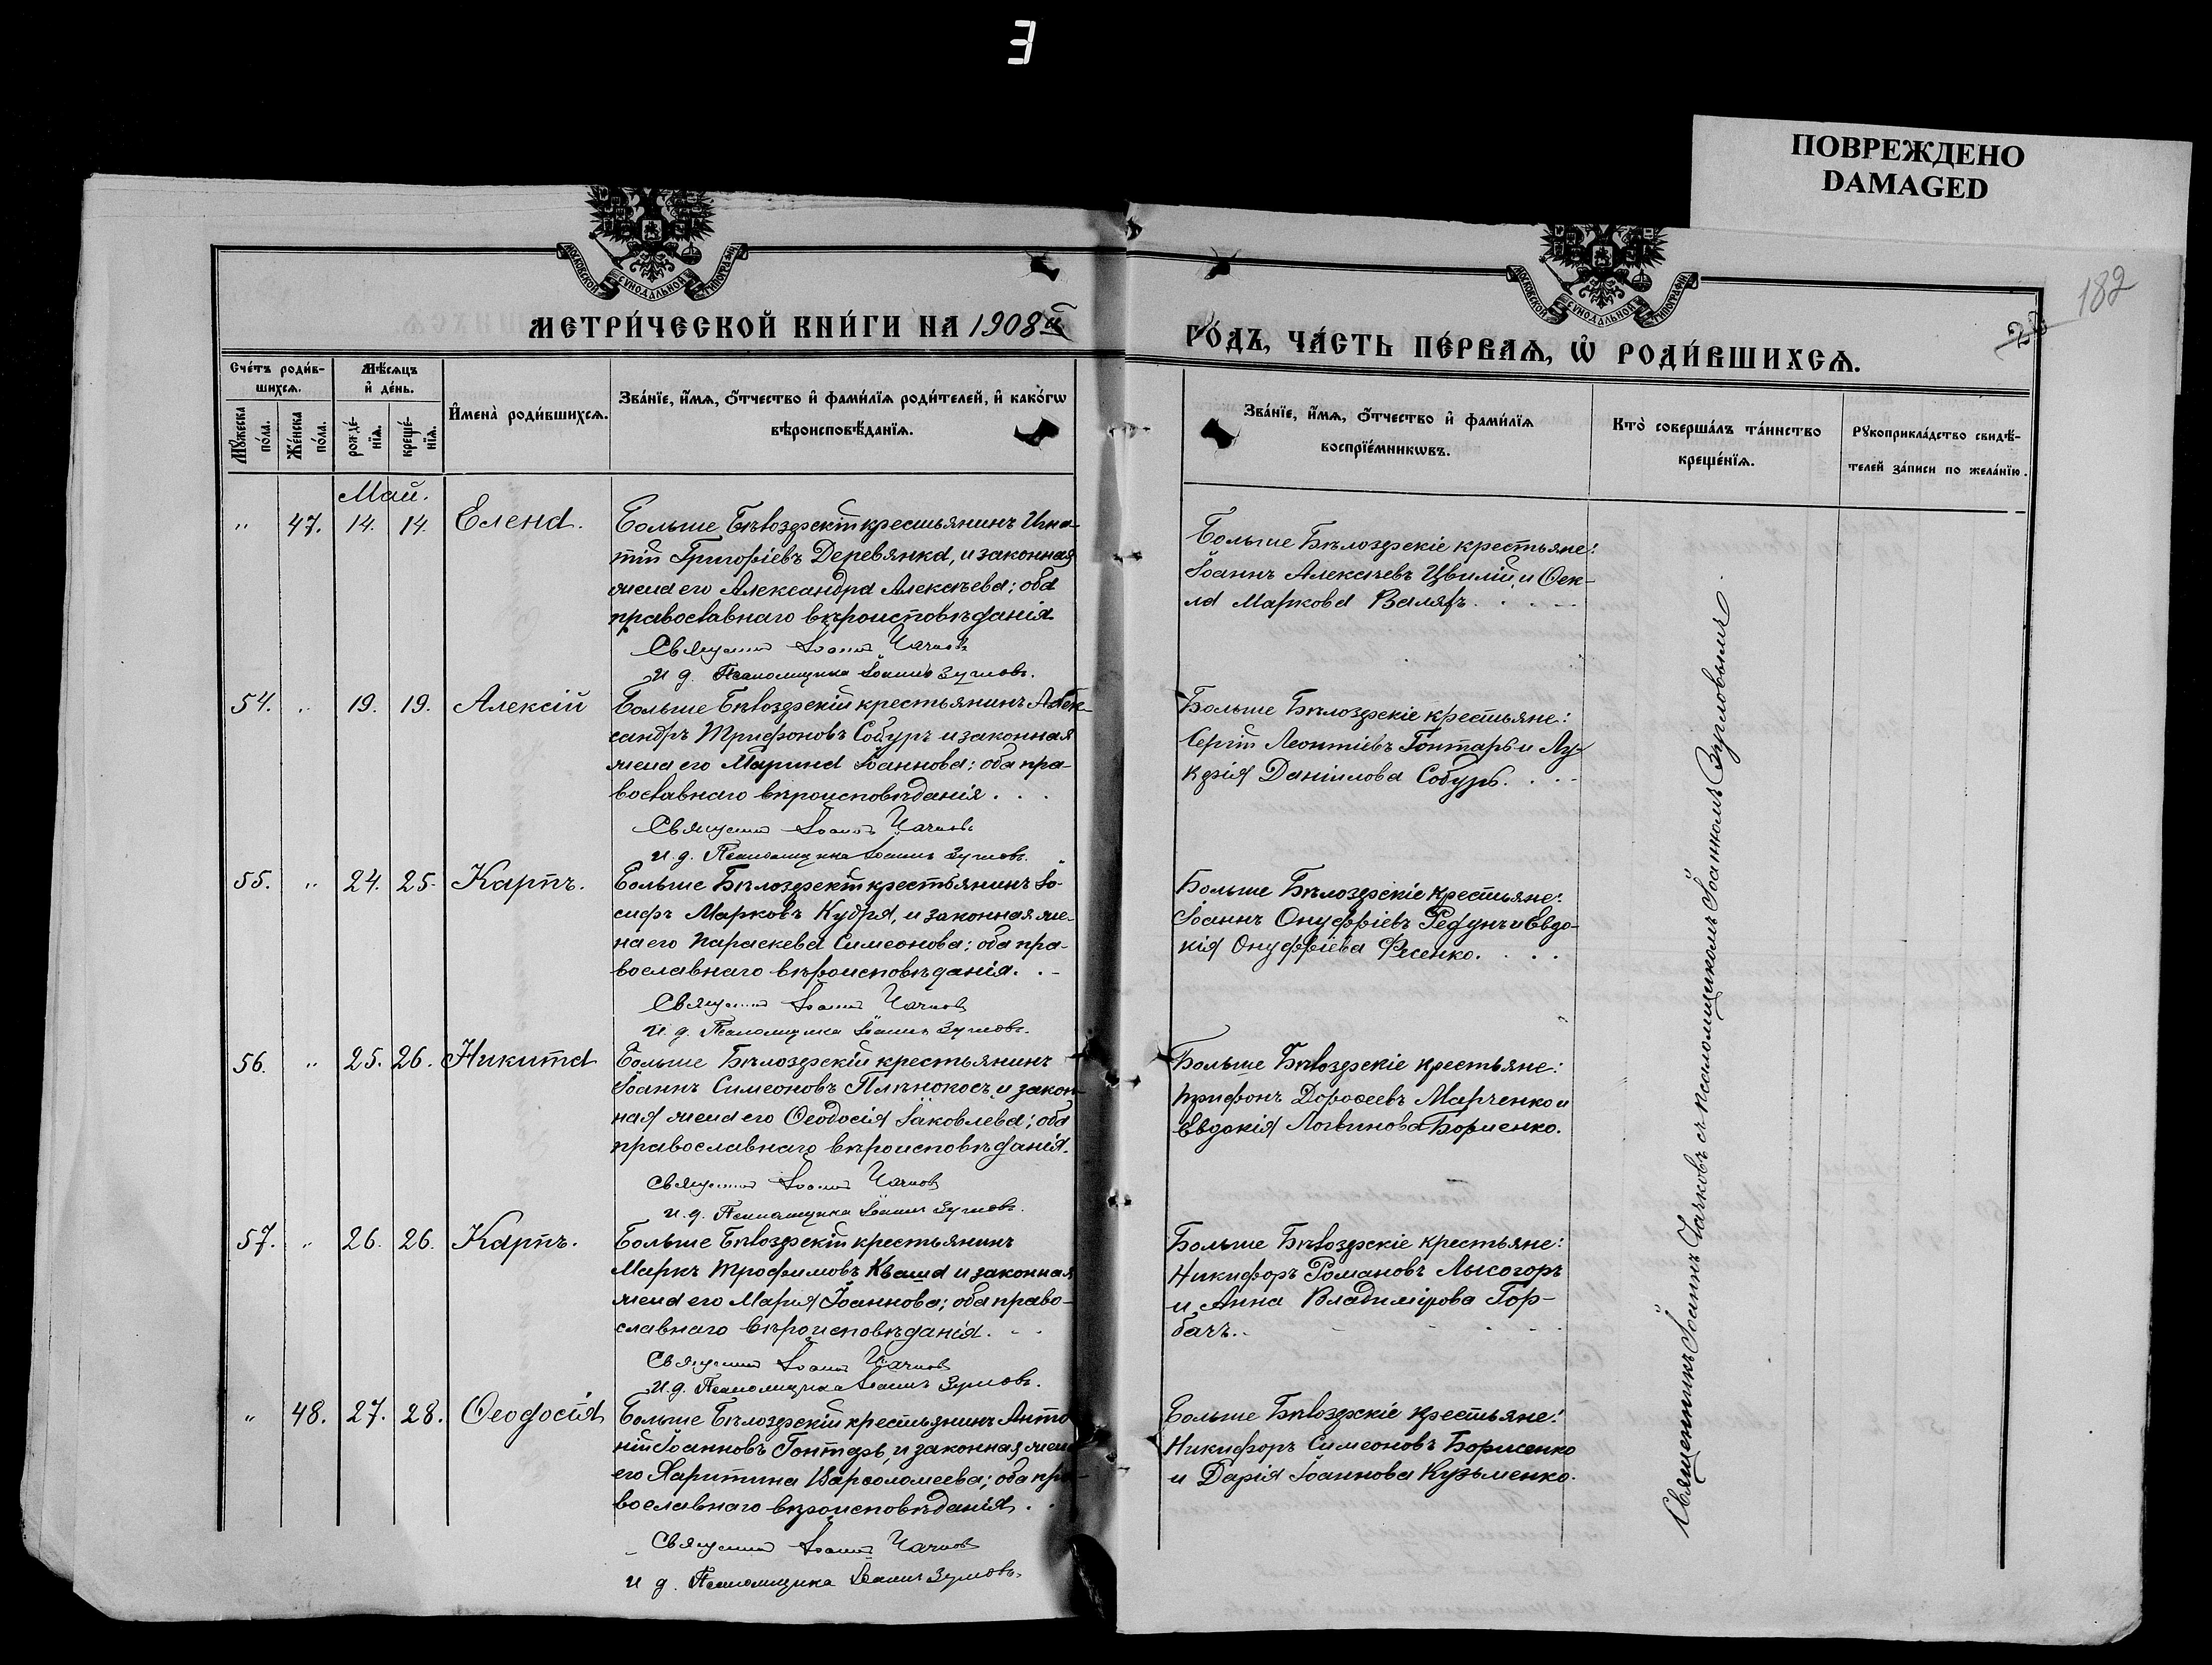 ПОВРЕЖДЕНО
DAMAGED
182
МОСКОВСКОЙ СѴНОДАЛЬНОЙ ТИПОГРАФІИ
МОСКОВСКОЙ СѴНОДАЛЬНОЙ ТИПОГРАФІИ
МЕТРИ́ЧЕСКОЙ КНИ́ГИ НА 1908й
ГО́ДЪ, ЧА́СТЬ ПЕ́РВАѦ, Ѡ҆ РОДИ́ВШИХСѦ.
Сче́тъ роди́в-
шихсѧ.
Мꙋ́жеска по́ла.
Же́нска по́ла.
Мѣ́сѧцъ
и҆ де́нь.
рожде́-
нїѧ.
креще́-
нїѧ.
И҆мена̀ роди́вшихсѧ.
Зва́нїе, и҆́мѧ, ѻ҆́тчество и҆ фами́лїѧ роди́телей, и҆ како́гѡ
вѣроисповѣ́данїѧ.
Зва́нїе, и҆́мѧ, ѻ҆́тчество и҆ фами́лїѧ
воспрїе́мникѡвъ.
Кто̀ соверша́лъ та́инство
креще́нїѧ.
Рꙋкоприкла́дство свидѣ́-
телей за́писи по жела́нїю.
Май.
" 47. 14. 14. Елена.
Больше Бѣлозерскій крестьянинъ Игна-
тій Григоріевъ Деревянка, и законная
жена его Александра Алексѣева; оба
православнаго вѣроисповѣданія.
Священникъ Іоаннъ Чачковъ
И. д. Псаломщика Іоаннъ Зугловъ.
Больше Бѣлозерскіе крестьяне:
Іоаннъ Алексѣевъ Цвилій, и Ѳек-
ла Маркова Валяръ.
54. " 19. 19. Алексій
Больше Бѣлозерскій крестьянинъ Алек-
сандръ Трифоновъ Собуръ и законная
жена его Марина Іоаннова; оба пра-
вославнаго вѣроисповѣданія.
Священникъ Іоаннъ Чачковъ
И. д. Псаломщика Іоаннъ Зугловъ.
Больше Бѣлозерскіе крестьяне:
Сергій Леонтіевъ Гонтарь и Лу-
керія Даніилова Собуръ.
55. " 24. 25. Карпъ.
Больше Бѣлозерскій крестьянинъ Іо-
сифъ Марковъ Кудря, и законная же-
на его Параскева Симеонова; оба пра-
вославнаго вѣроисповѣданія.
Священникъ Іоаннъ Чачковъ
И. д. Псаломщика Іоаннъ Зугловъ.
Больше Бѣлозерскіе крестьяне:
Іоаннъ Онуфріевъ Редунъ и Евдо-
кія Онуфріева Фесенко.
56. " 25. 26. Никита
Больше Бѣлозерскій крестьянинъ
Іоаннъ Симеоновъ Плѣнокосъ, и закон-
ная жена его Ѳеодосія Іаковлева; оба
православнаго вѣроисповѣданія.
Священникъ Іоаннъ Чачковъ
И. д. Псаломщика Іоаннъ Зугловъ.
Больше Бѣлозерскіе крестьяне:
Трифонъ Дороѳеевъ Марченко и
Евдокія Логвинова Борисенко.
57. " 26. 26. Карпъ.
Больше Бѣлозерскій крестьянинъ
Маркъ Трофимовъ Кваша и законная
жена его Марія Іоаннова; оба право-
славнаго вѣроисповѣданія.
Священникъ Іоаннъ Чачковъ
И. д. Псаломщика Іоаннъ Зугловъ.
Больше Бѣлозерскіе крестьяне:
Никифоръ Романовъ Лысогоръ
и Анна Владимірова Гор-
бачъ.
" 48. 27. 28. Ѳеодосія
Больше Бѣлозерскій крестьянинъ Анто-
ній Іоанновъ Гонтарь, и законная жена
его Харитина Варѳоломеева; оба пра-
вославнаго вѣроисповѣданія.
Священникъ Іоаннъ Чачковъ
И. д. Псаломщика Іоаннъ Зугловъ.
Больше Бѣлозерскіе крестьяне:
Никифоръ Симеоновъ Борисенко
и Дарія Іоаннова Кузьменко.
Священникъ Іоаннъ Чачковъ съ псаломщикомъ Іоанномъ Зугловымъ.